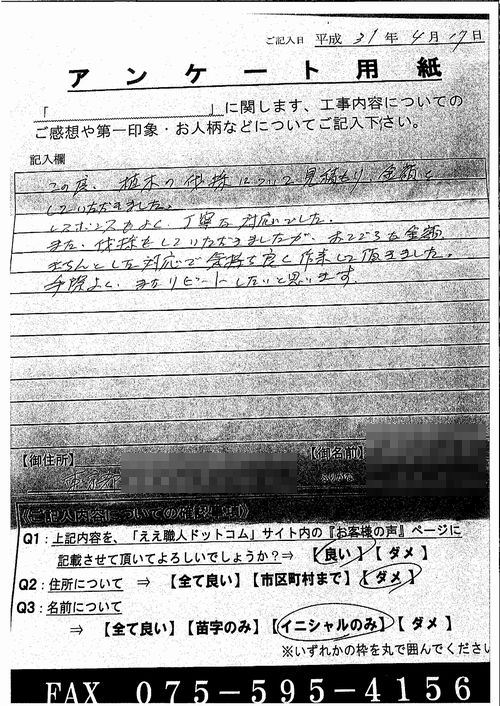 ご記入日 平成 31年 4月 17日
アンケート用紙
「　　　　　　　　」に関します、工事内容についての
ご感想や第一印象・お人柄などについてご記入下さい。
記入欄
この度、植木の伐採について見積もり、金額と
していただきました。
レスポンスもよく、丁寧な対応でした。
また、伐採をしていただきましたが、お手ごろな金額
きちんとした対応で気持ち良く作業して頂きました。
手際よく、またリピートしたいと思います。
【御住所】
【御名前】
ふりがな
《ご記入内容についての確認事項》
Q1：上記内容を、「ええ職人ドットコム」サイト内の『お客様の声』ページに
記載させて頂いてよろしいでしょうか？⇒ 【良い】【ダメ】
Q2：住所について ⇒ 【全て良い】【市区町村まで】【ダメ】
Q3：名前について
⇒ 【全て良い】【苗字のみ】【イニシャルのみ】【ダメ】
※いずれかの枠を丸で囲んでください
FAX 075-595-4156